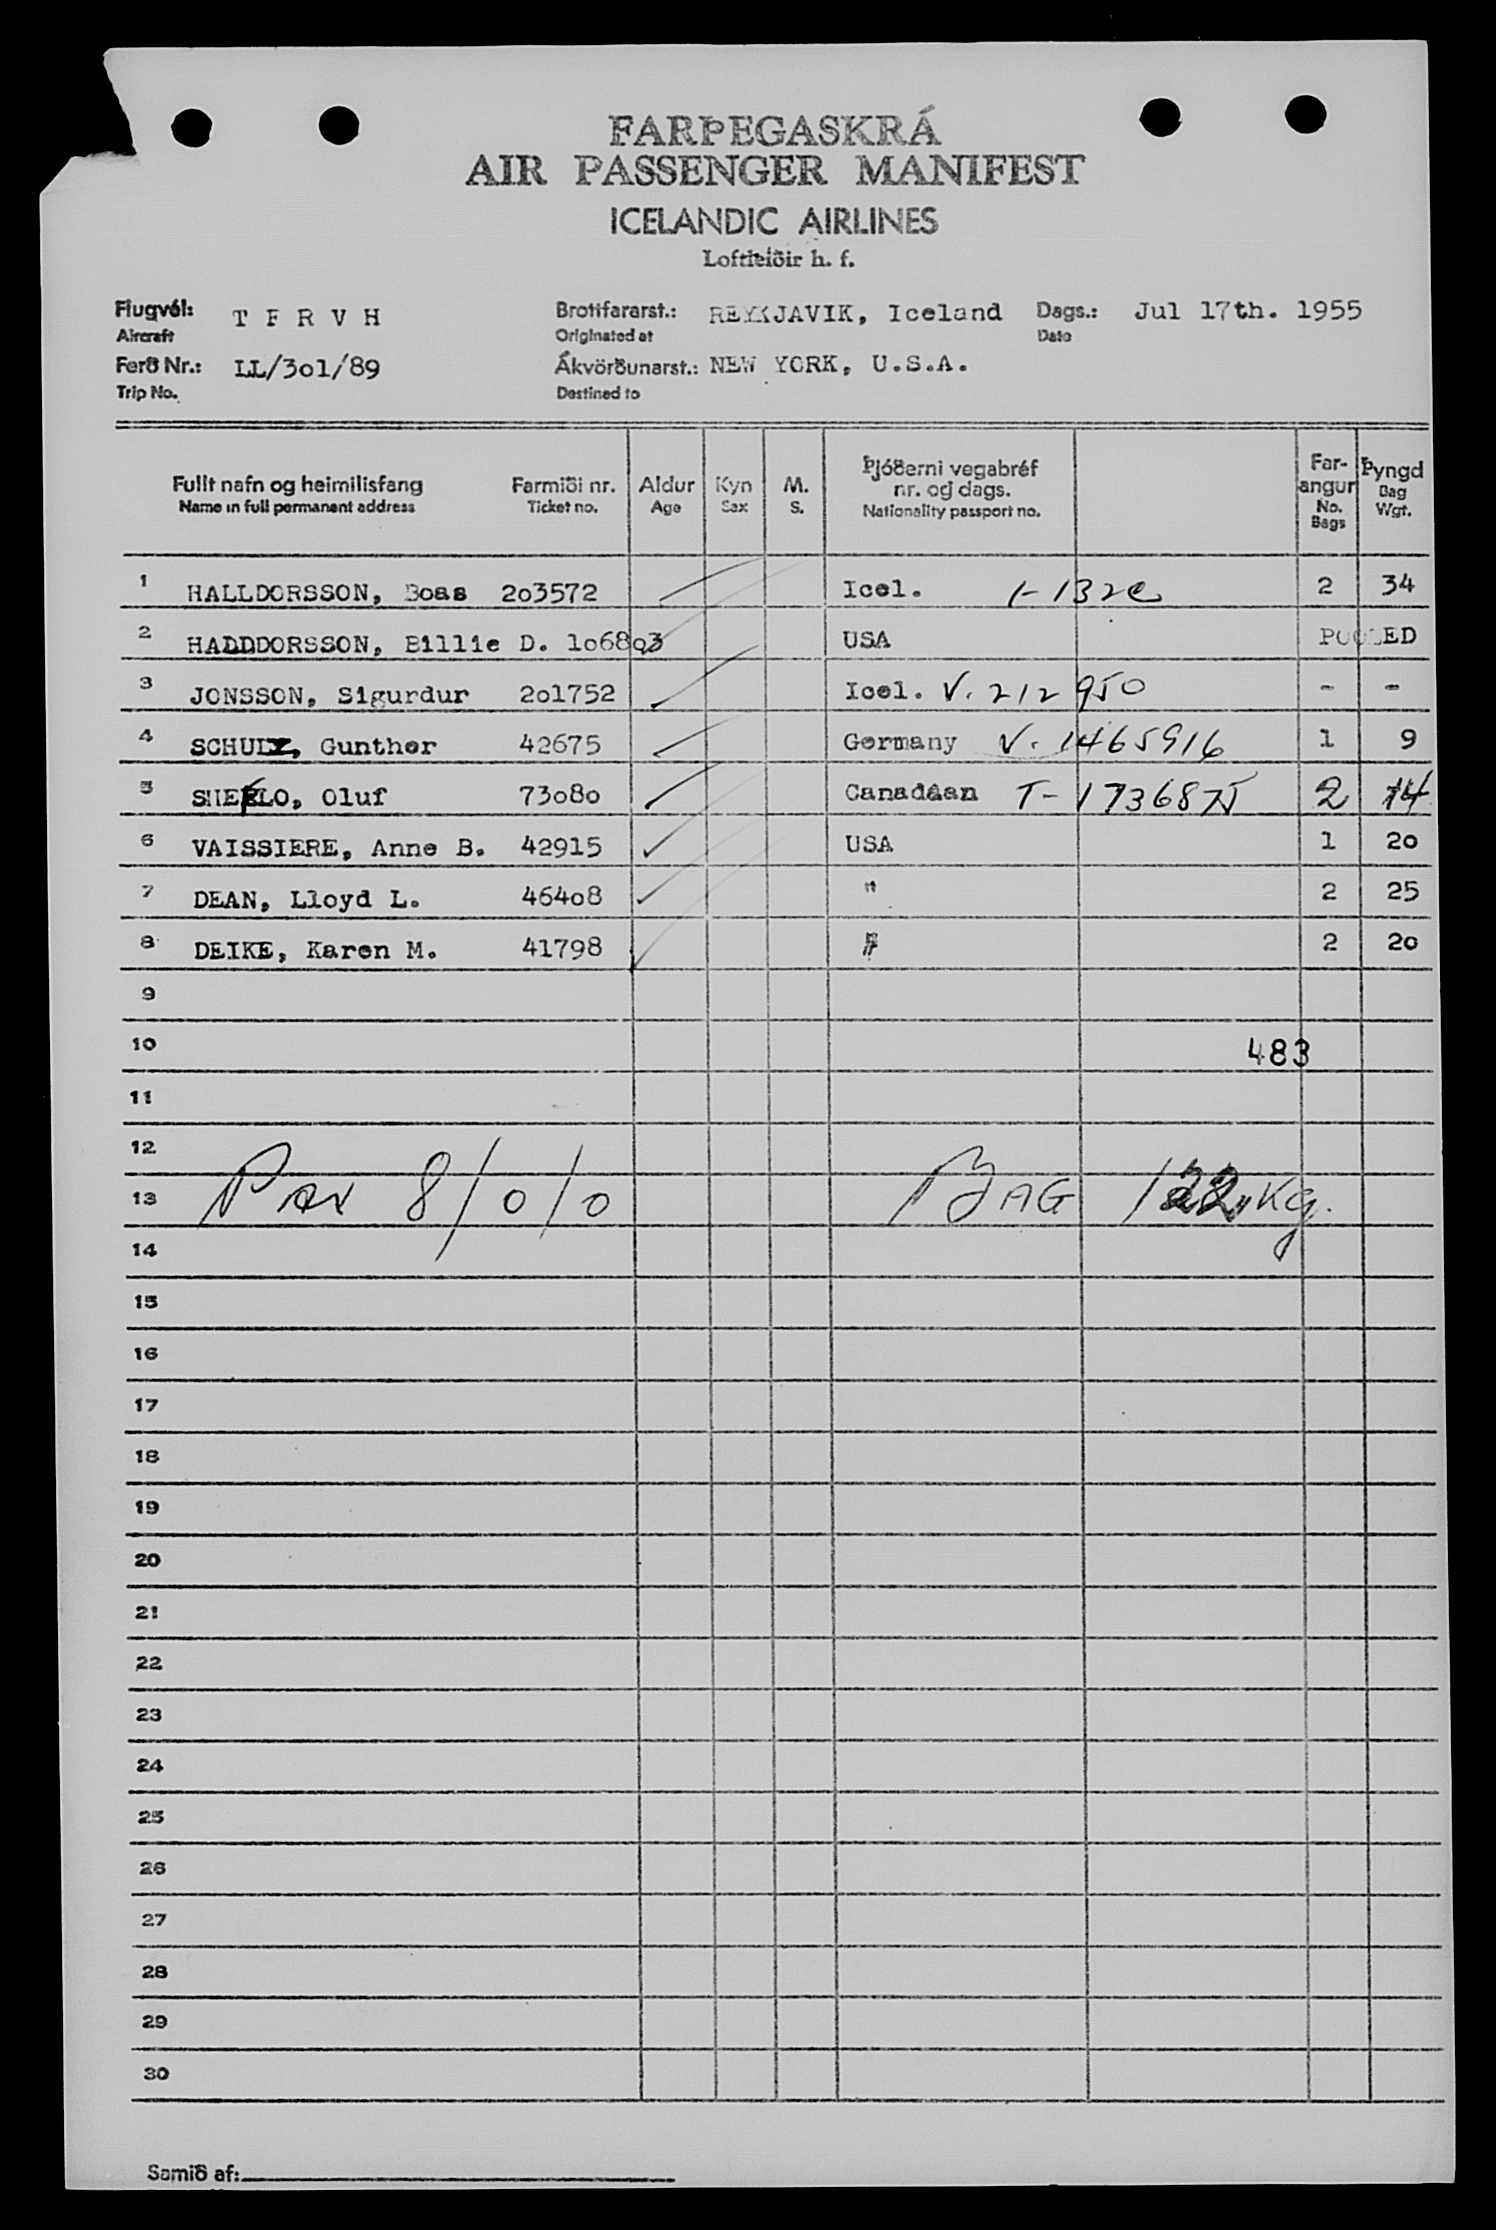 FARÞEGASKRÁ
AIR PASSENGER MANIFEST
ICELANDIC AIRLINES
Loftleiðir h. f.
Flugvél: T F R V H Brottfararst.: REYKJAVIK, Iceland Dags.: Jul 17th. 1955
Aircraft Originated at Date
Ferð Nr.: LL/3o1/89 Ákvörðunarst.: NEW YORK, U.S.A.
Trip No. Destined to
Fullt nafn og heimilisfang Farmiði nr. Aldur Kyn M. Þjóðerni vegabréf nr. og dags. Far-angur Þyngd
Name in full permanent address Ticket no. Age Sex S. Nationality passport no. No. Bags Bag Wgt.
1 HALLDORSSON, Boas 2o3572 Icel. 2 34
2 HADDDORSSON, Billie D. 1o68o3 USA POOLED
3 JONSSON, Sigurdur 2o1752 Icel. V. 212950 - -
4 SCHULZ, Gunther 42675 Germany V. 1465916 1 9
5 Oluf 73o8o Canadian T- 2 14
6 VAISSIERE, Anne B. 42915 USA 1 2o
7 DEAN, Lloyd L. 464o8 " 2 25
8 DEIKE, Karen M. 41798 2 2o
9
10 483
11
12
13 Pax 8/0/0 BAG 122 Kg.
14
15
16
17
18
19
20
21
22
23
24
25
26
27
28
29
30
Samið af: